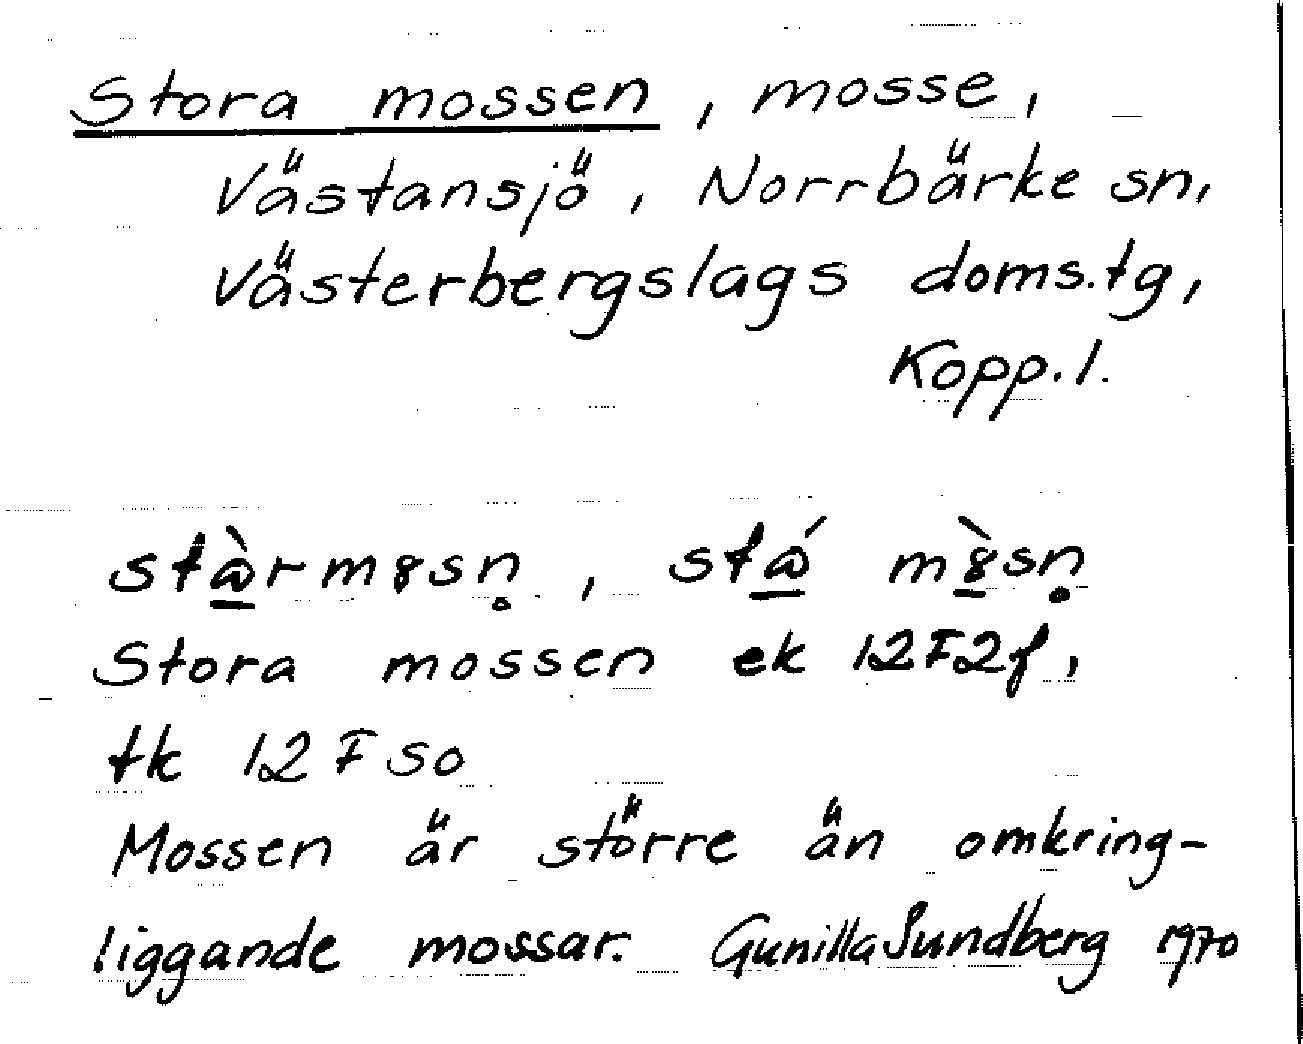 Stora mossen, mosse,
Västansjö, Norrbärke sn,
Västerbergslags doms.tg,
Kopp.l.
stàrm8sn̥, stá m8̀sn̥
Stora mossen ek 12F2f,
tk 12F SO
Mossen är större än omkring-
liggande mossar. Gunilla Sundberg 1970